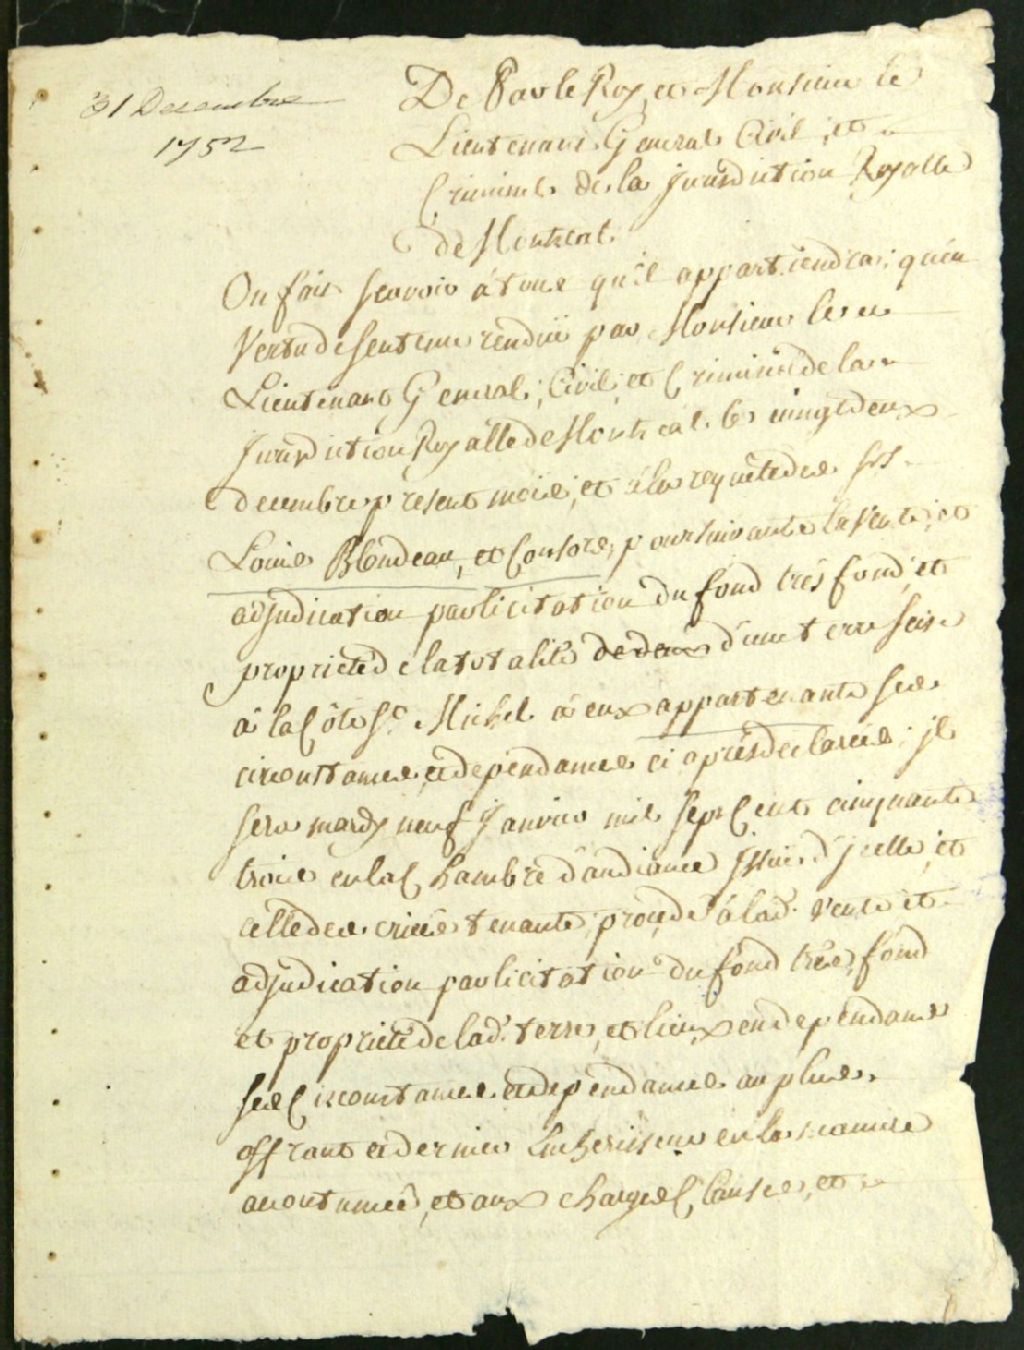 31 Decembre
1752
De Par le Roy, et Monsieur le
Lieutenant General Civil, et
Criminel de la Jurisdiction Royalle
de Montreal.
On fait scavoir à tous qu'il appartiendra; qu'en
Vertu de sentence rendüe par Monsieur le
Lieutenant General, Civil, et Criminel de la
Jurisdiction Royalle de Montreal le vingt deux
decembre present mois, et à la requête des srs
Louis Blondeau, et Consors, poursuivants la Vente, et
adjudication par licitation du fond très fond, et
proprieté de la totalité de deux d'une terre scise
à la Côte St. Michel à eux appartenante ses
circonstances et dependances ci après declarées; il
sera mardy neuf Janvier mil sept Cent cinquante
trois en la Chambre d'audiance Issüe d'jcelle, et
celle des criées tenante, procedé à lad. Vente et
adjudication par licitation du fond très fond
et proprieté de lad. terre, et lieux en dependants
ses Circonstances et dependances au plus
offrant et dernier Encherisseur en la maniere
acoutumée, et aux charges, Clauses, et